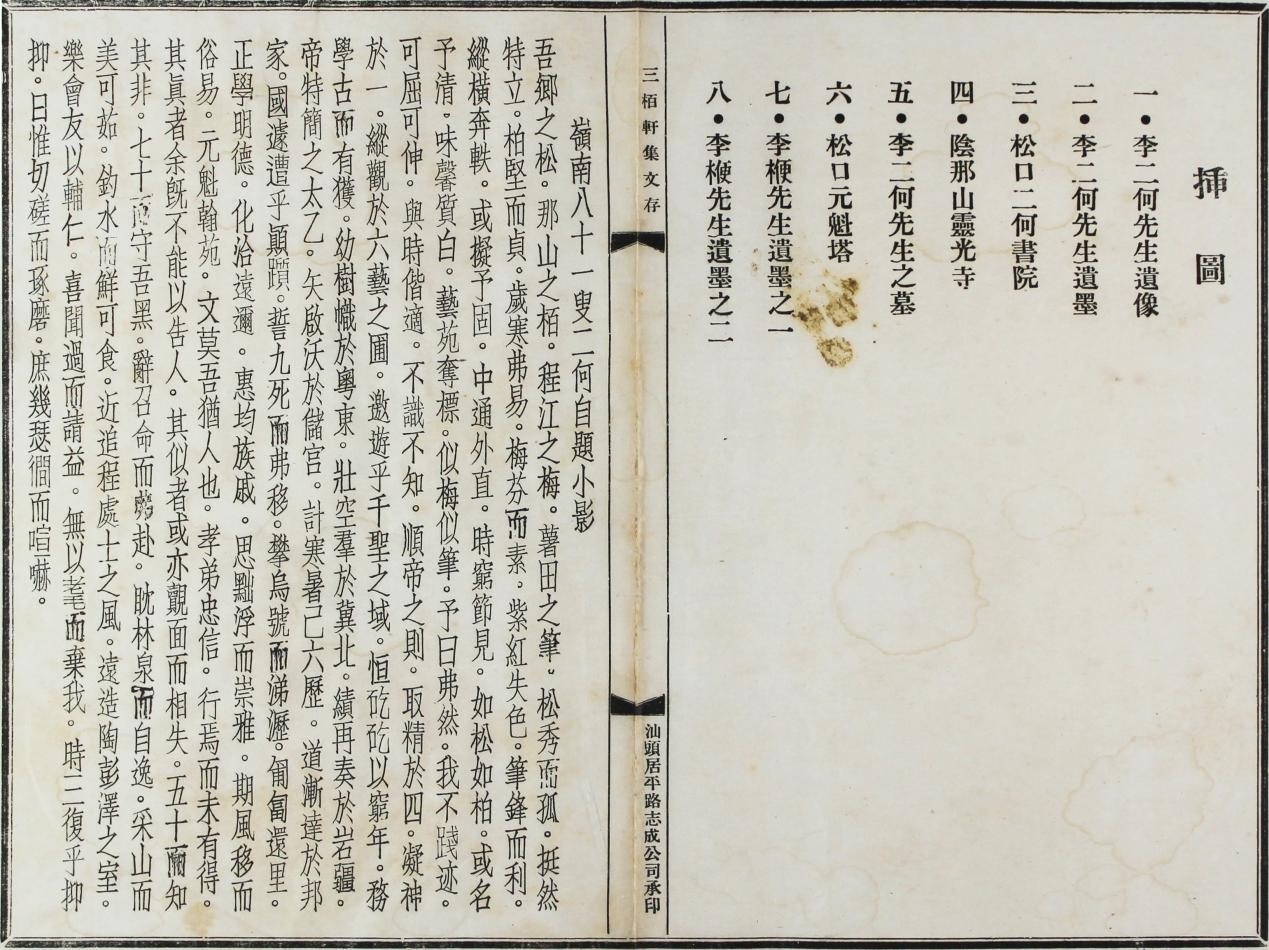 揷圖
一●李二何先生遺像
二●李二何先生遺墨
三●松口二何書院
四●陰那山靈光寺
五●李二何先生之墓
六●松口元魁塔
七●李楩先生遺墨之一
八●李楩先生遺墨之二
三栢軒集文存
汕頭居平路志成公司承印
嶺南八十一叟二何自題小影
吾鄉之松。那山之栢。程江之梅。薯田之筆。松秀而孤。挺然
特立。柏堅而貞。歲寒弗易。梅芬而素。紫紅失色。筆鋒而利。
縱橫奔軼。或擬予固。中通外直。時窮節見。如松如柏。或名
予清。味馨質白。藝苑奪標。似梅似筆。予曰弗然。我不踐迹。
可屈可伸。與時偕適。不識不知。順帝之則。取精於四。凝神
於一。縱觀於六藝之圃。邀遊乎千聖之域。恒矻矻以窮年。務
學古而有獲。幼樹幟於粵東。壯空羣於冀北。績再奏於岩疆。
帝特簡之太乙。矢啟沃於儲宮。計寒暑己六歷。道漸達於邦
家。國遽遭乎顚躓。誓九死而弗移。攀烏號而涕瀝。匍匐還里。
正學明德。化洽遠邇。惠均族戚。思黜浮而崇雅。期風移而
俗易。元魁翰苑。文莫吾猶人也。孝弟忠信。行焉而未有得。
其眞者余旣不能以告人。其似者或亦覿面而相失。五十而知
其非。七十而守吾黑。辭召命而赴。眈林泉而自逸。采山而
美可茹。釣水而鮮可食。近追程處士之風。遠造陶彭澤之室。
樂會友以輔仁。喜聞過而請益。無以耄而棄我。時三復乎抑
抑。日惟切磋而琢磨。庶幾瑟僩而喧嚇。